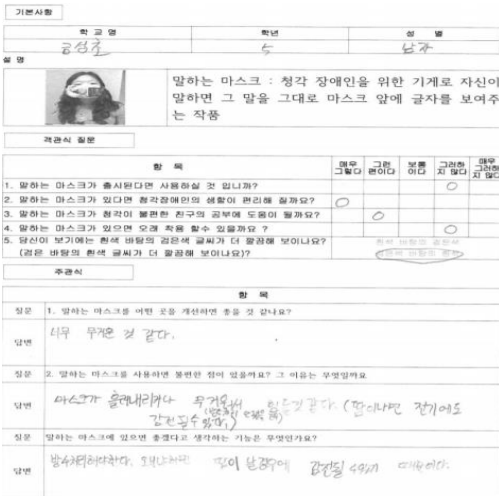 기본사항
학 교 명 학년 성 별
공성초 5 남자
설 명
말하는 마스크 : 청각 장애인을 위한 기계로 자신이
말하면 그 말을 그대로 마스크 앞에 글자를 보여주
는 작품
객관식 질문
항 목 매우 그렇다 그런 편이다 보통 이다 그러하 지 않다 매우 그러하 지 않다
1. 말하는 마스크가 출시된다면 사용하실 것 입니까?
2. 말하는 마스크가 있다면 청각장애인의 생활이 편리해 질까요?
3. 말하는 마스크가 청각이 불편한 친구의 공부에 도움이 될까요?
4. 말하는 마스크가 있으면 오래 착용 할수 있을까요 ?
5. 당신이 보기에는 흰색 바탕의 검은색 글씨가 더 깔끔해 보이나요? 흰색 바탕의 검은색
(검은 바탕의 흰색 글씨가 더 깔끔해 보이나요)? 검은색 바탕의 흰색
주관식
항 목
질문 1. 말하는 마스크를 어떤 곳을 개선하면 좋을 것 같나요?
답변 너무 무거운 것 같다.
질문 2. 말하는 마스크를 사용하면 불편한 점이 있을까요? 그 이유는 무엇일까요
답변 마스크가 흘러내리거나 무거워서 같다. (땀이나면 전기에도
감전될수 있다.)
질문 말하는 마스크에 있으면 좋겠다고 생각하는 기능은 무엇인가요?
답변 방수처리해야한다. 왜냐하면 땀이 날경우에 감전될 수있기 때문이다.